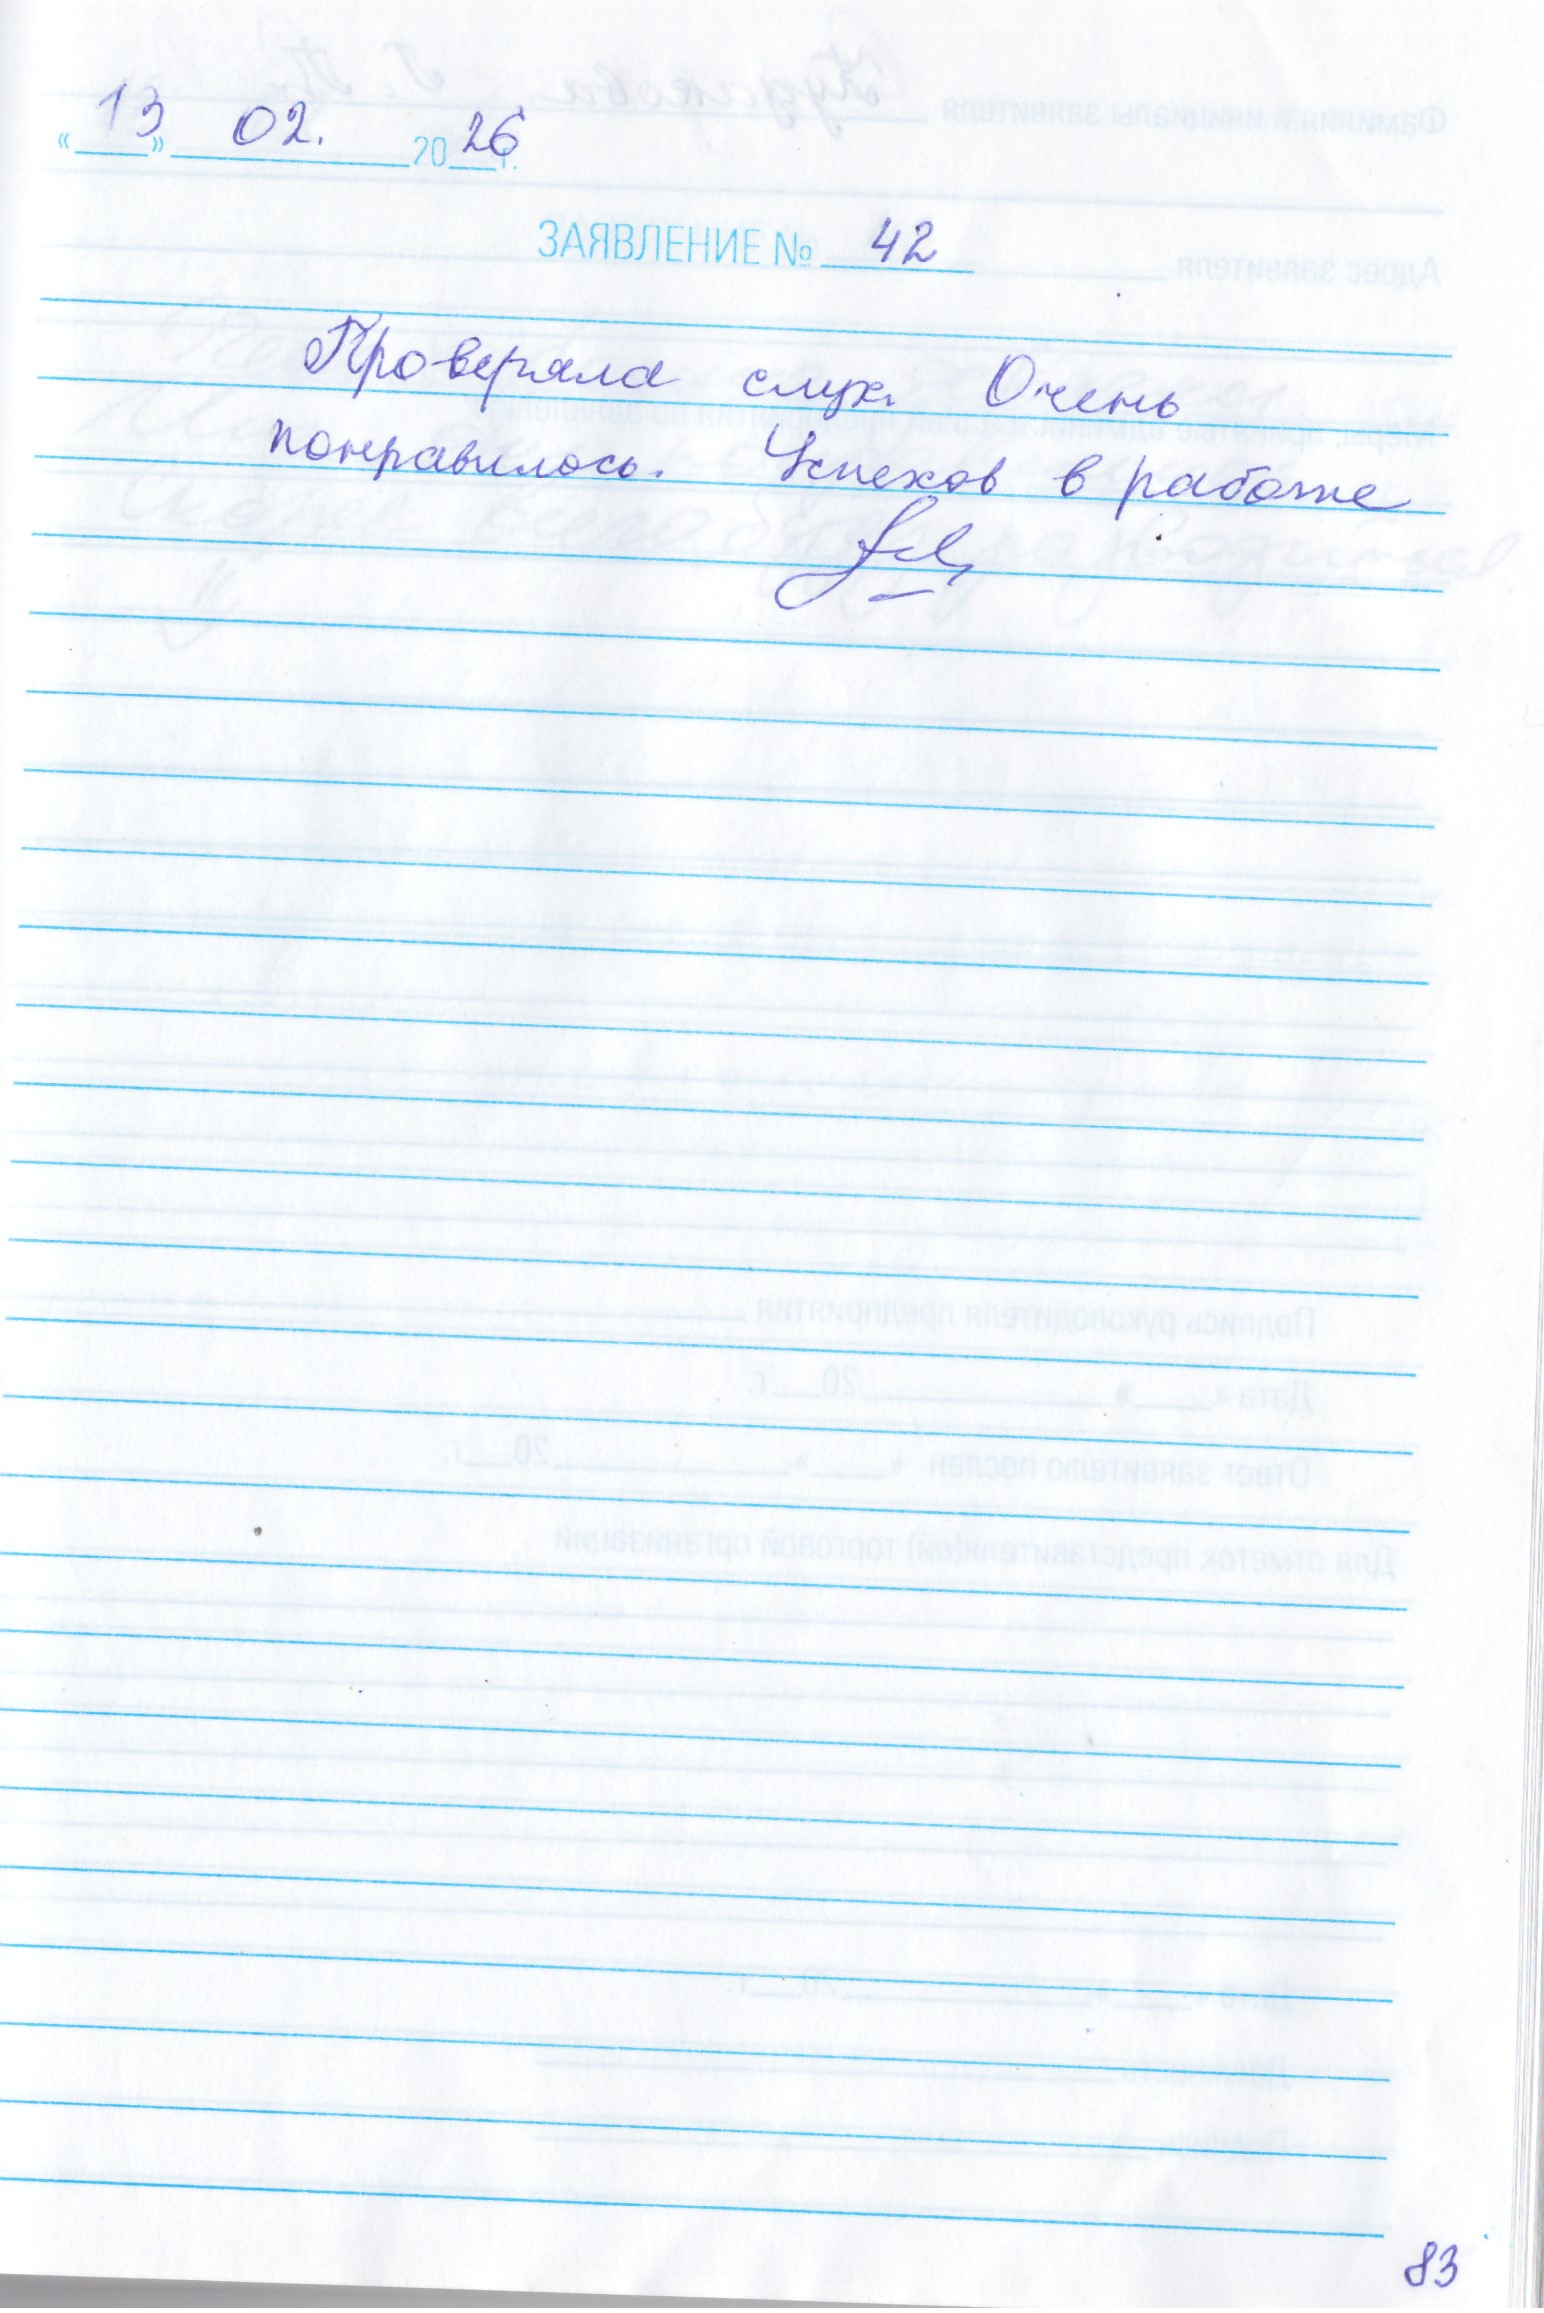 «13» 02. 2026 г.
ЗАЯВЛЕНИЕ № 42
Проверяла слух. Очень
понравилось. Успехов в работе
83